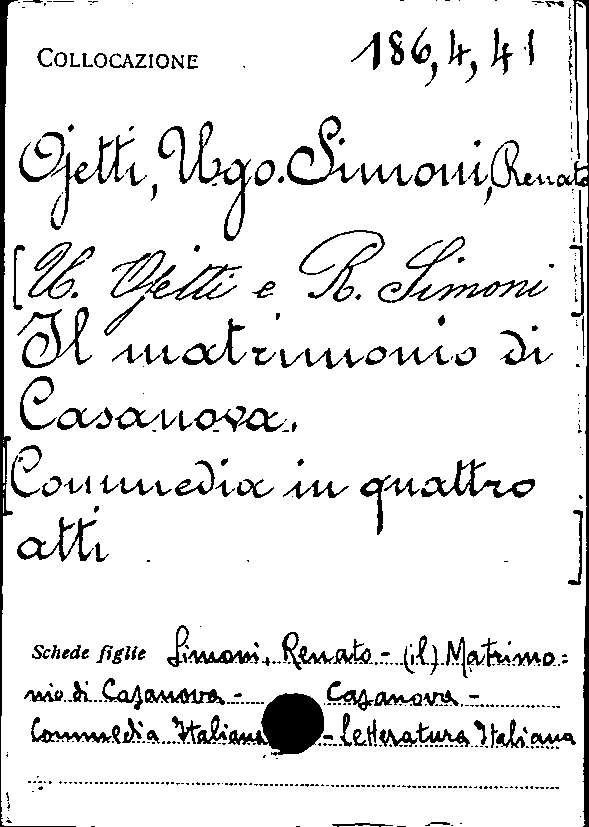 COLLOCAZIONE 186,4,41
Ojetti, Ugo. Simoni, Renato
[U. Ojetti e R. Simoni]
Il matrimonio di
Casanova.
[Commedia in quattro
atti]
Schede figlie Simoni, Renato - (il) Matrimo=
nio di Casanova - Casanova -
Commedia Italiana - letteratura Italiana